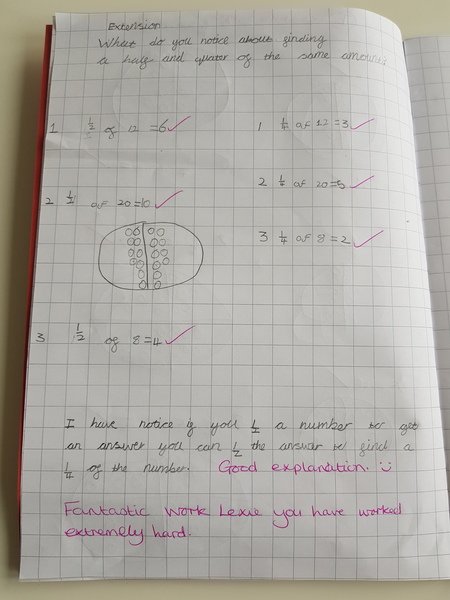 Extension
What do you notice about finding
a half and quater of the same amount?
1 1/2 of 12 =6
1 1/4 of 12=3
2 1/2 of 20=10
2 1/4 of 20=5
3 1/4 of 8=2
3 1/2 of 8=4
I have notice if you 1/2 a number to get
an answer you can 1/2 the answer to find a
1/4 of the number. Good explanation.
Fantastic work Lexie you have worked
extremely hard.